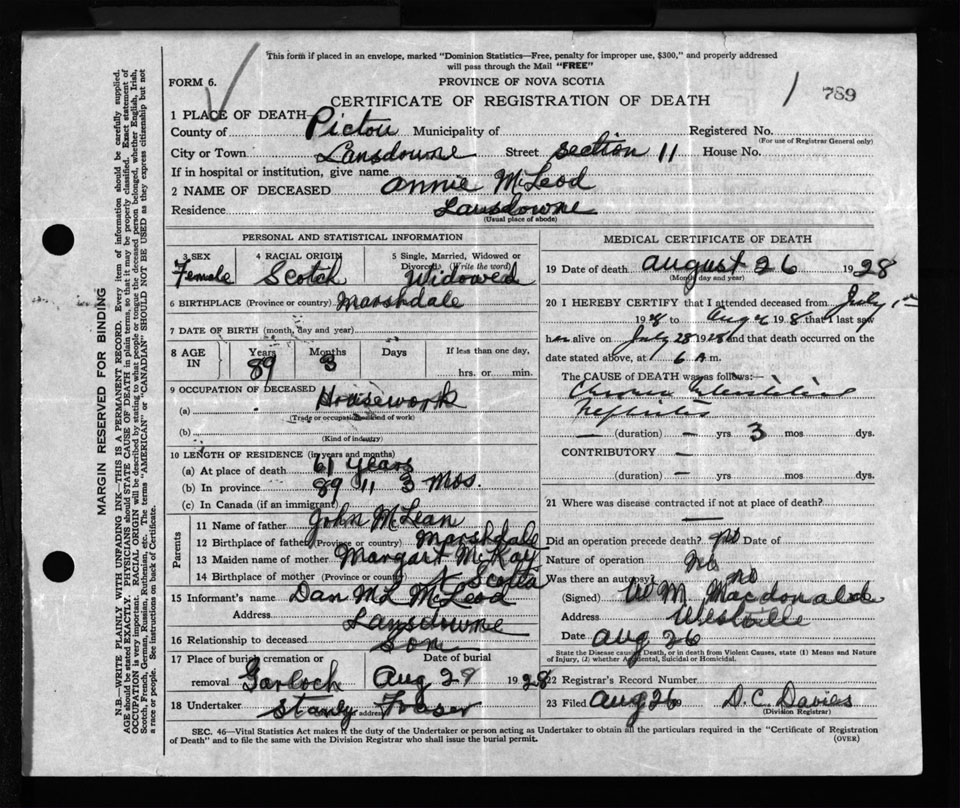 This form if placed in an envelope, marked "Dominion Statistics—Free, penalty for improper use, $300," and properly addressed
will pass through the Mail "FREE"
FORM 6.
PROVINCE OF NOVA SCOTIA
CERTIFICATE OF REGISTRATION OF DEATH
789
1 PLACE OF DEATH
County of Pictou Municipality of Registered No.
(For use of Registrar General only)
City or Town Lansdowne Street section 11 House No.
If in hospital or institution, give name
2 NAME OF DECEASED Annie McLeod
Residence Lansdowne
(Usual place of abode)
PERSONAL AND STATISTICAL INFORMATION
3 SEX 4 RACIAL ORIGIN 5 Single, Married, Widowed or
Divorced (Write the word)
Female Scotch Widowed
6 BIRTHPLACE (Province or country) Marshdale
7 DATE OF BIRTH (month, day and year)
8 AGE IN Years Months Days If less than one day,
89 3 hrs. or min.
9 OCCUPATION OF DECEASED
(a) Housework
(Trade or occupation, kind of work)
(b)
(Kind of industry)
10 LENGTH OF RESIDENCE (in years and months)
(a) At place of death 61 years
(b) In province 89 11 3 mos.
(c) In Canada (if an immigrant)
Parents
11 Name of father John McLean
12 Birthplace of father (Province or country) Marshdale
13 Maiden name of mother Margart McKay
14 Birthplace of mother (Province or country) N Scotia
15 Informant's name Dan McL McLeod
Address Lansdowne
16 Relationship to deceased son
17 Place of burial, cremation or Date of burial
removal Garloch Aug 29 1928
18 Undertaker Stanly Fraser
address
MEDICAL CERTIFICATE OF DEATH
19 Date of death August 26 1928
(Month, day and year)
20 I HEREBY CERTIFY that I attended deceased from July 1
1928 to Aug 1928 that I last saw
her alive on July 28 1928 and that death occurred on the
date stated above, at 6 A m.
The CAUSE of DEATH was as follows:—
Chronic Interstitial
Nefritis
— (duration) — yrs 3 mos dys.
CONTRIBUTORY —
(duration) — yrs mos dys.
21 Where was disease contracted if not at place of death?
—
Did an operation precede death? no Date of
Nature of operation no
Was there an autopsy no
(Signed) M. Macdonald
Address Westville
Date Aug 26
State the Disease causing Death, or in death from Violent Causes, state (1) Means and Nature
of Injury, (2) whether Accidental, Suicidal or Homicidal.
22 Registrar's Record Number
23 Filed Aug 26 D.C. Davies
(Division Registrar)
SEC. 46—Vital Statistics Act makes it the duty of the Undertaker or person acting as Undertaker to obtain all the particulars required in the "Certificate of Registration
of Death" and to file the same with the Division Registrar who shall issue the burial permit.
(OVER)
MARGIN RESERVED FOR BINDING
N.B.—WRITE PLAINLY WITH UNFADING INK—THIS IS A PERMANENT RECORD. Every item of information should be carefully supplied.
AGE should be stated EXACTLY. PHYSICIANS should STATE CAUSE OF DEATH in plain terms, so that it may be properly classified. Exact statement of
OCCUPATION is very important. RACIAL ORIGIN will be described by stating to what people or tongue the deceased person belonged, whether English, Irish,
Scotch, French, German, Russian, Ruthenian, etc. The terms "AMERICAN" or "CANADIAN" SHOULD NOT BE USED as they express citizenship but not
a race or people. See instructions on back of Certificate.